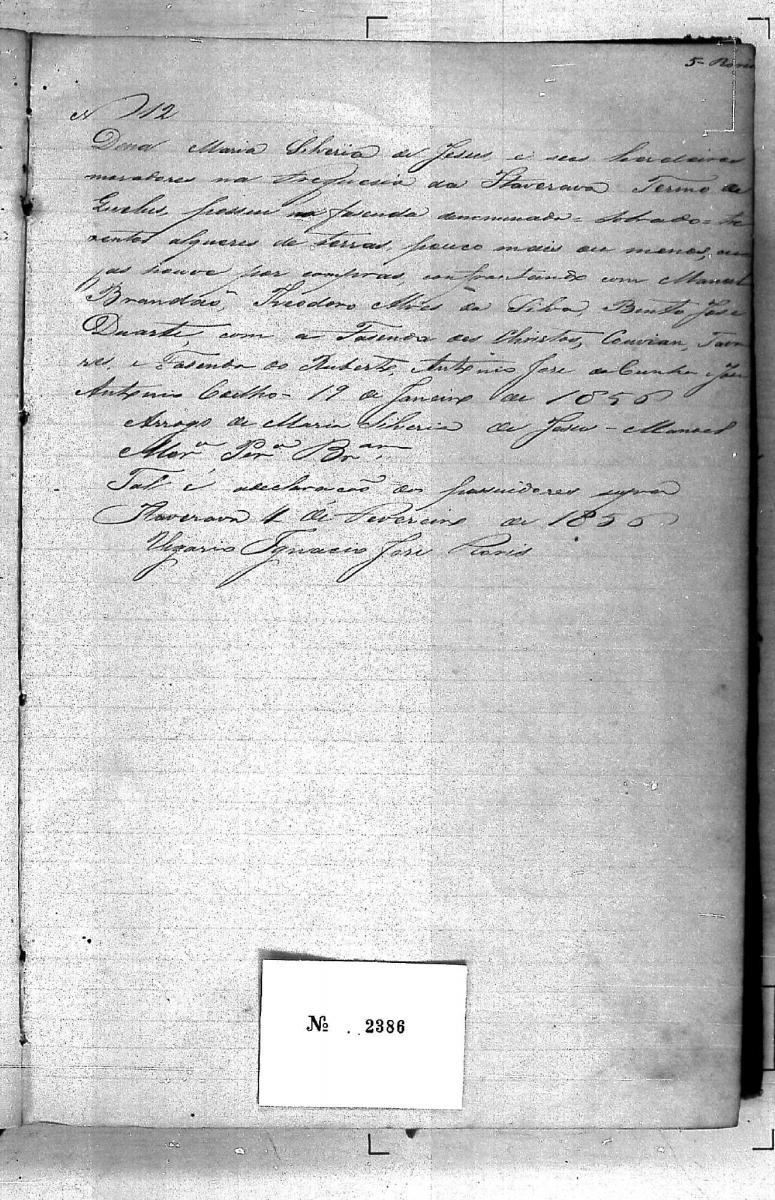 5 - Roris
N 12
Dona Maria Silveria de Jesus e seus herdeiros
moradores na freguesia da Itaverava Termo de
Quelus, possue na fazenda denominada = Sobrado = tre
sentos alqueres de terras, pouco mais ou menos, cu
jas houve por compras, confrontando com Manoel
Brandão, Theodoro Alves da Silva, Bento Jose
Duarte, com a Fasenda dos Christos, Tava
res, e Fasenda do Ruberto, Antonio Jose da Cunha e Jose
Antonio Coelho - 19 de Janeiro de 1856
Arrogo de Maria Silveria de Jesus - Manoel
Mor.a Per.a Br.am
Tal é a declaração dos possuidores
Itaverava 4 de Fevereiro de 1856
Vigario Ignacio José Roris
№ 2386